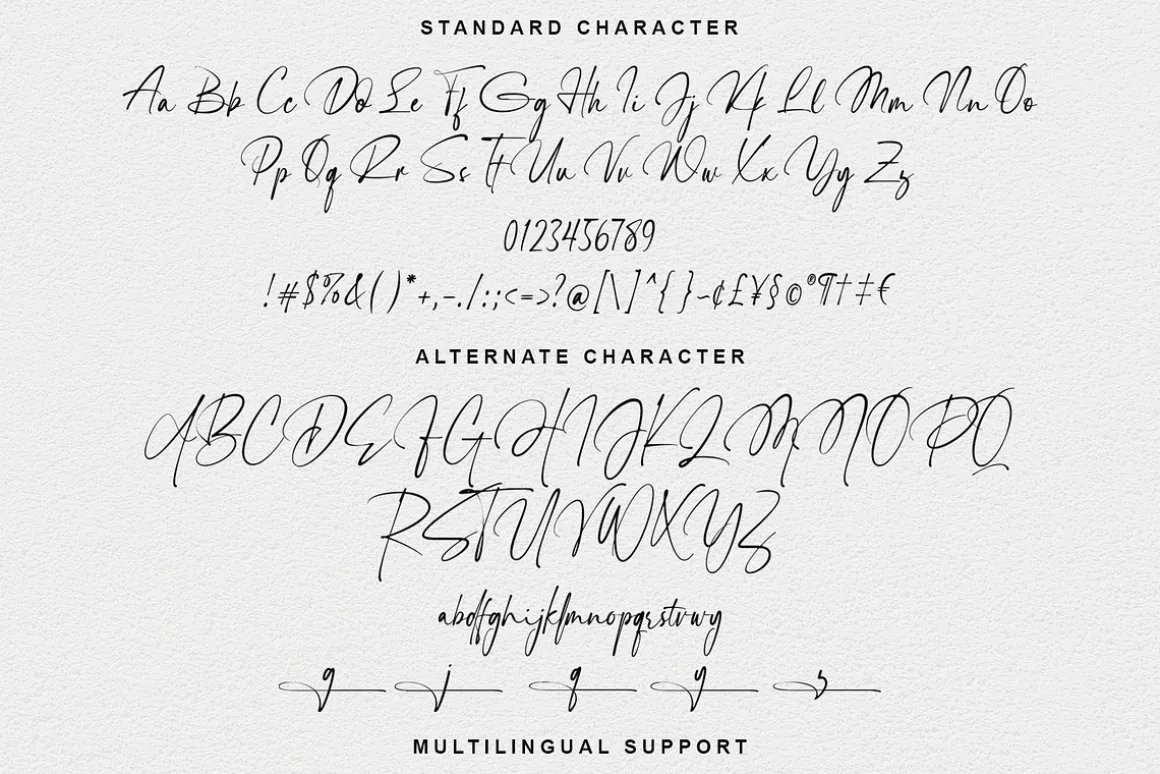 STANDARD CHARACTER
Aa Bb Cc Dd Ee Ff Gg Hh Ii Jj Kk Ll Mm Nn Oo
Pp Qq Rr Ss Tt Uu Vv Ww Xx Yy Zz
0123456789
!#$%&()*+,-./:;<=>?@[\]^{}~¢£¥§©®¶†‡€
ALTERNATE CHARACTER
ABCDEFGHIJKLMNOPQ
RSTUVWXYZ
abdfghijklmnopqrstvwy
g j q y s
MULTILINGUAL SUPPORT